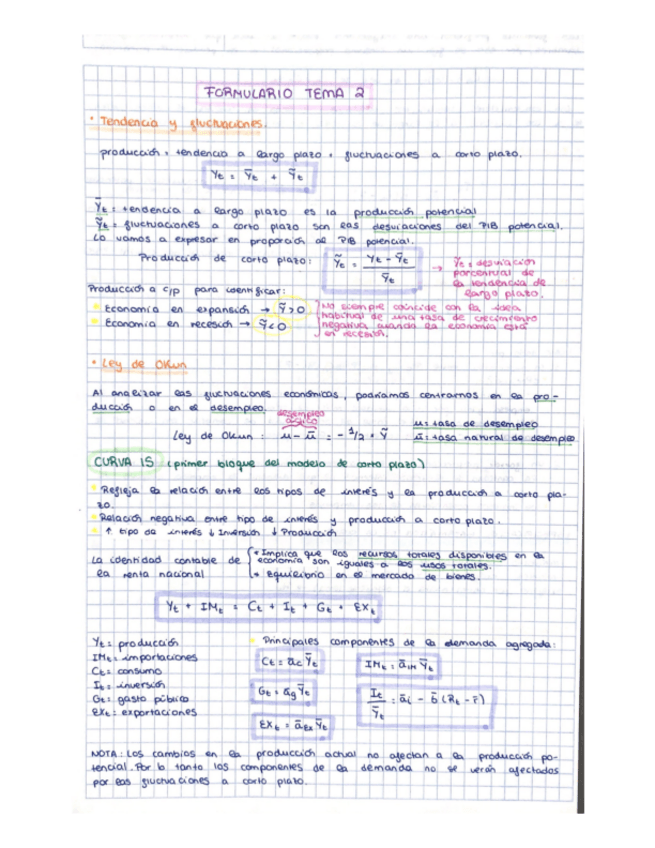 FORMULARIO TEMA 2
• Tendencia y fluctuaciones.
producción = tendencia a largo plazo + fluctuaciones a corto plazo.
Yt = Ȳt + Ỹt
Ȳt = tendencia a largo plazo es la producción potencial
Ỹt = fluctuaciones a corto plazo son las desviaciones del PIB potencial.
Lo vamos a expresar en proporción al PIB potencial.
Producción de corto plazo: Ỹt = (Yt - Ȳt) / Ȳt → Ỹt = desviación
porcentual de
la tendencia de
largo plazo.
Producción a c/p para identificar:
• Economía en expansión → Ỹ > 0
• Economía en recesión → Ỹ < 0
No siempre coincide con la idea
habitual de una tasa de crecimiento
negativa cuando la economía está
en recesión.
• Ley de Okun
Al analizar las fluctuaciones económicas, podríamos centrarnos en la pro-
ducción o en el desempleo.
desempleo
cíclico
Ley de Okun: u - ū = - 1/2 * Ỹ
u = tasa de desempleo
ū = tasa natural de desempleo
CURVA IS (primer bloque del modelo de corto plazo)
• Refleja la relación entre los tipos de interés y la producción a corto pla-
zo.
• Relación negativa entre tipo de interés y producción a corto plazo.
• ↑ tipo de interés ↓ Inversión ↓ Producción
La identidad contable de
la renta nacional
• Implica que los recursos totales disponibles en la
economía son iguales a los usos totales.
→ equilibrio en el mercado de bienes.
Yt + IMt = Ct + It + Gt + EXt
Yt = producción
IMt = importaciones
Ct = consumo
It = inversión
Gt = gasto público
EXt = exportaciones
• Principales componentes de la demanda agregada:
Ct = āc Ȳt
IMt = āIM Ȳt
Gt = āg Ȳt
It / Ȳt = āi - b̄ (Rt - r̄)
EXt = āEX Ȳt
NOTA: Los cambios en la producción actual no afectan a la producción po-
tencial. Por lo tanto los componentes de la demanda no se verán afectados
por las fluctuaciones a corto plazo.